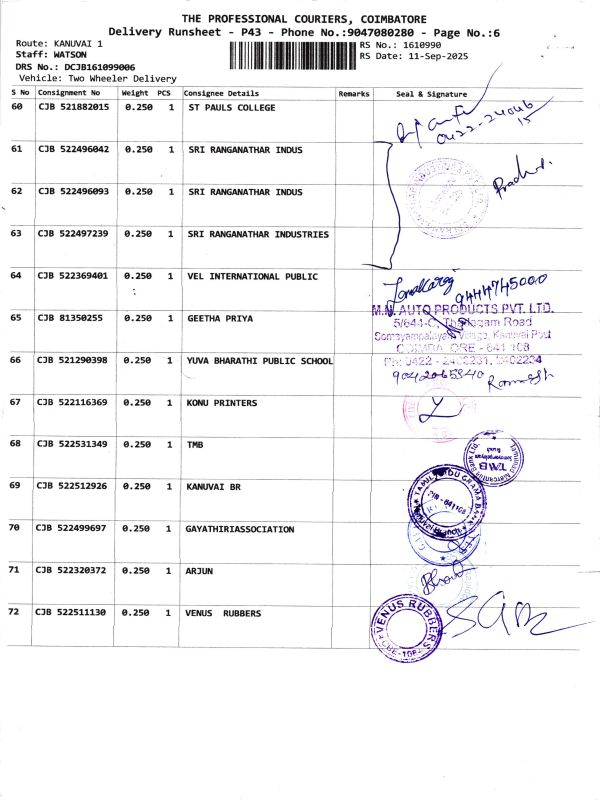 THE PROFESSIONAL COURIERS, COIMBATORE
Delivery Runsheet - P43 - Phone No.:9047080280 - Page No.:6
Route: KANUVAI 1
Staff: WATSON
DRS No.: DCJB161099006
Vehicle: Two Wheeler Delivery
RS No.: 1610990
RS Date: 11-Sep-2025
S No Consignment No Weight PCS Consignee Details Remarks Seal & Signature
60 CJB 521882015 0.250 1 ST PAULS COLLEGE
0422-24046
15
61 CJB 522496042 0.250 1 SRI RANGANATHAR INDUS
62 CJB 522496093 0.250 1 SRI RANGANATHAR INDUS
63 CJB 522497239 0.250 1 SRI RANGANATHAR INDUSTRIES
64 CJB 522369401 0.250 1 VEL INTERNATIONAL PUBLIC
9444745000
65 CJB 81350255 0.250 1 GEETHA PRIYA
M.N. AUTO PRODUCTS PVT. LTD.
5/644-C, Thadagam Road
Somayampalayam Village, Kanuvai Post
COIMBATORE - 641 108
66 CJB 521290398 0.250 1 YUVA BHARATHI PUBLIC SCHOOL
9042065340 Ramesh
67 CJB 522116369 0.250 1 KONU PRINTERS
68 CJB 522531349 0.250 1 TMB
Tamilnad Mercantile Bank Ltd.
TMB
69 CJB 522512926 0.250 1 KANUVAI BR
TAMIL NADU GRAMA BANK
PIN - 641108
Kanuvai Branch
70 CJB 522499697 0.250 1 GAYATHIRIASSOCIATION
71 CJB 522320372 0.250 1 ARJUN
72 CJB 522511130 0.250 1 VENUS RUBBERS
VENUS RUBBERS